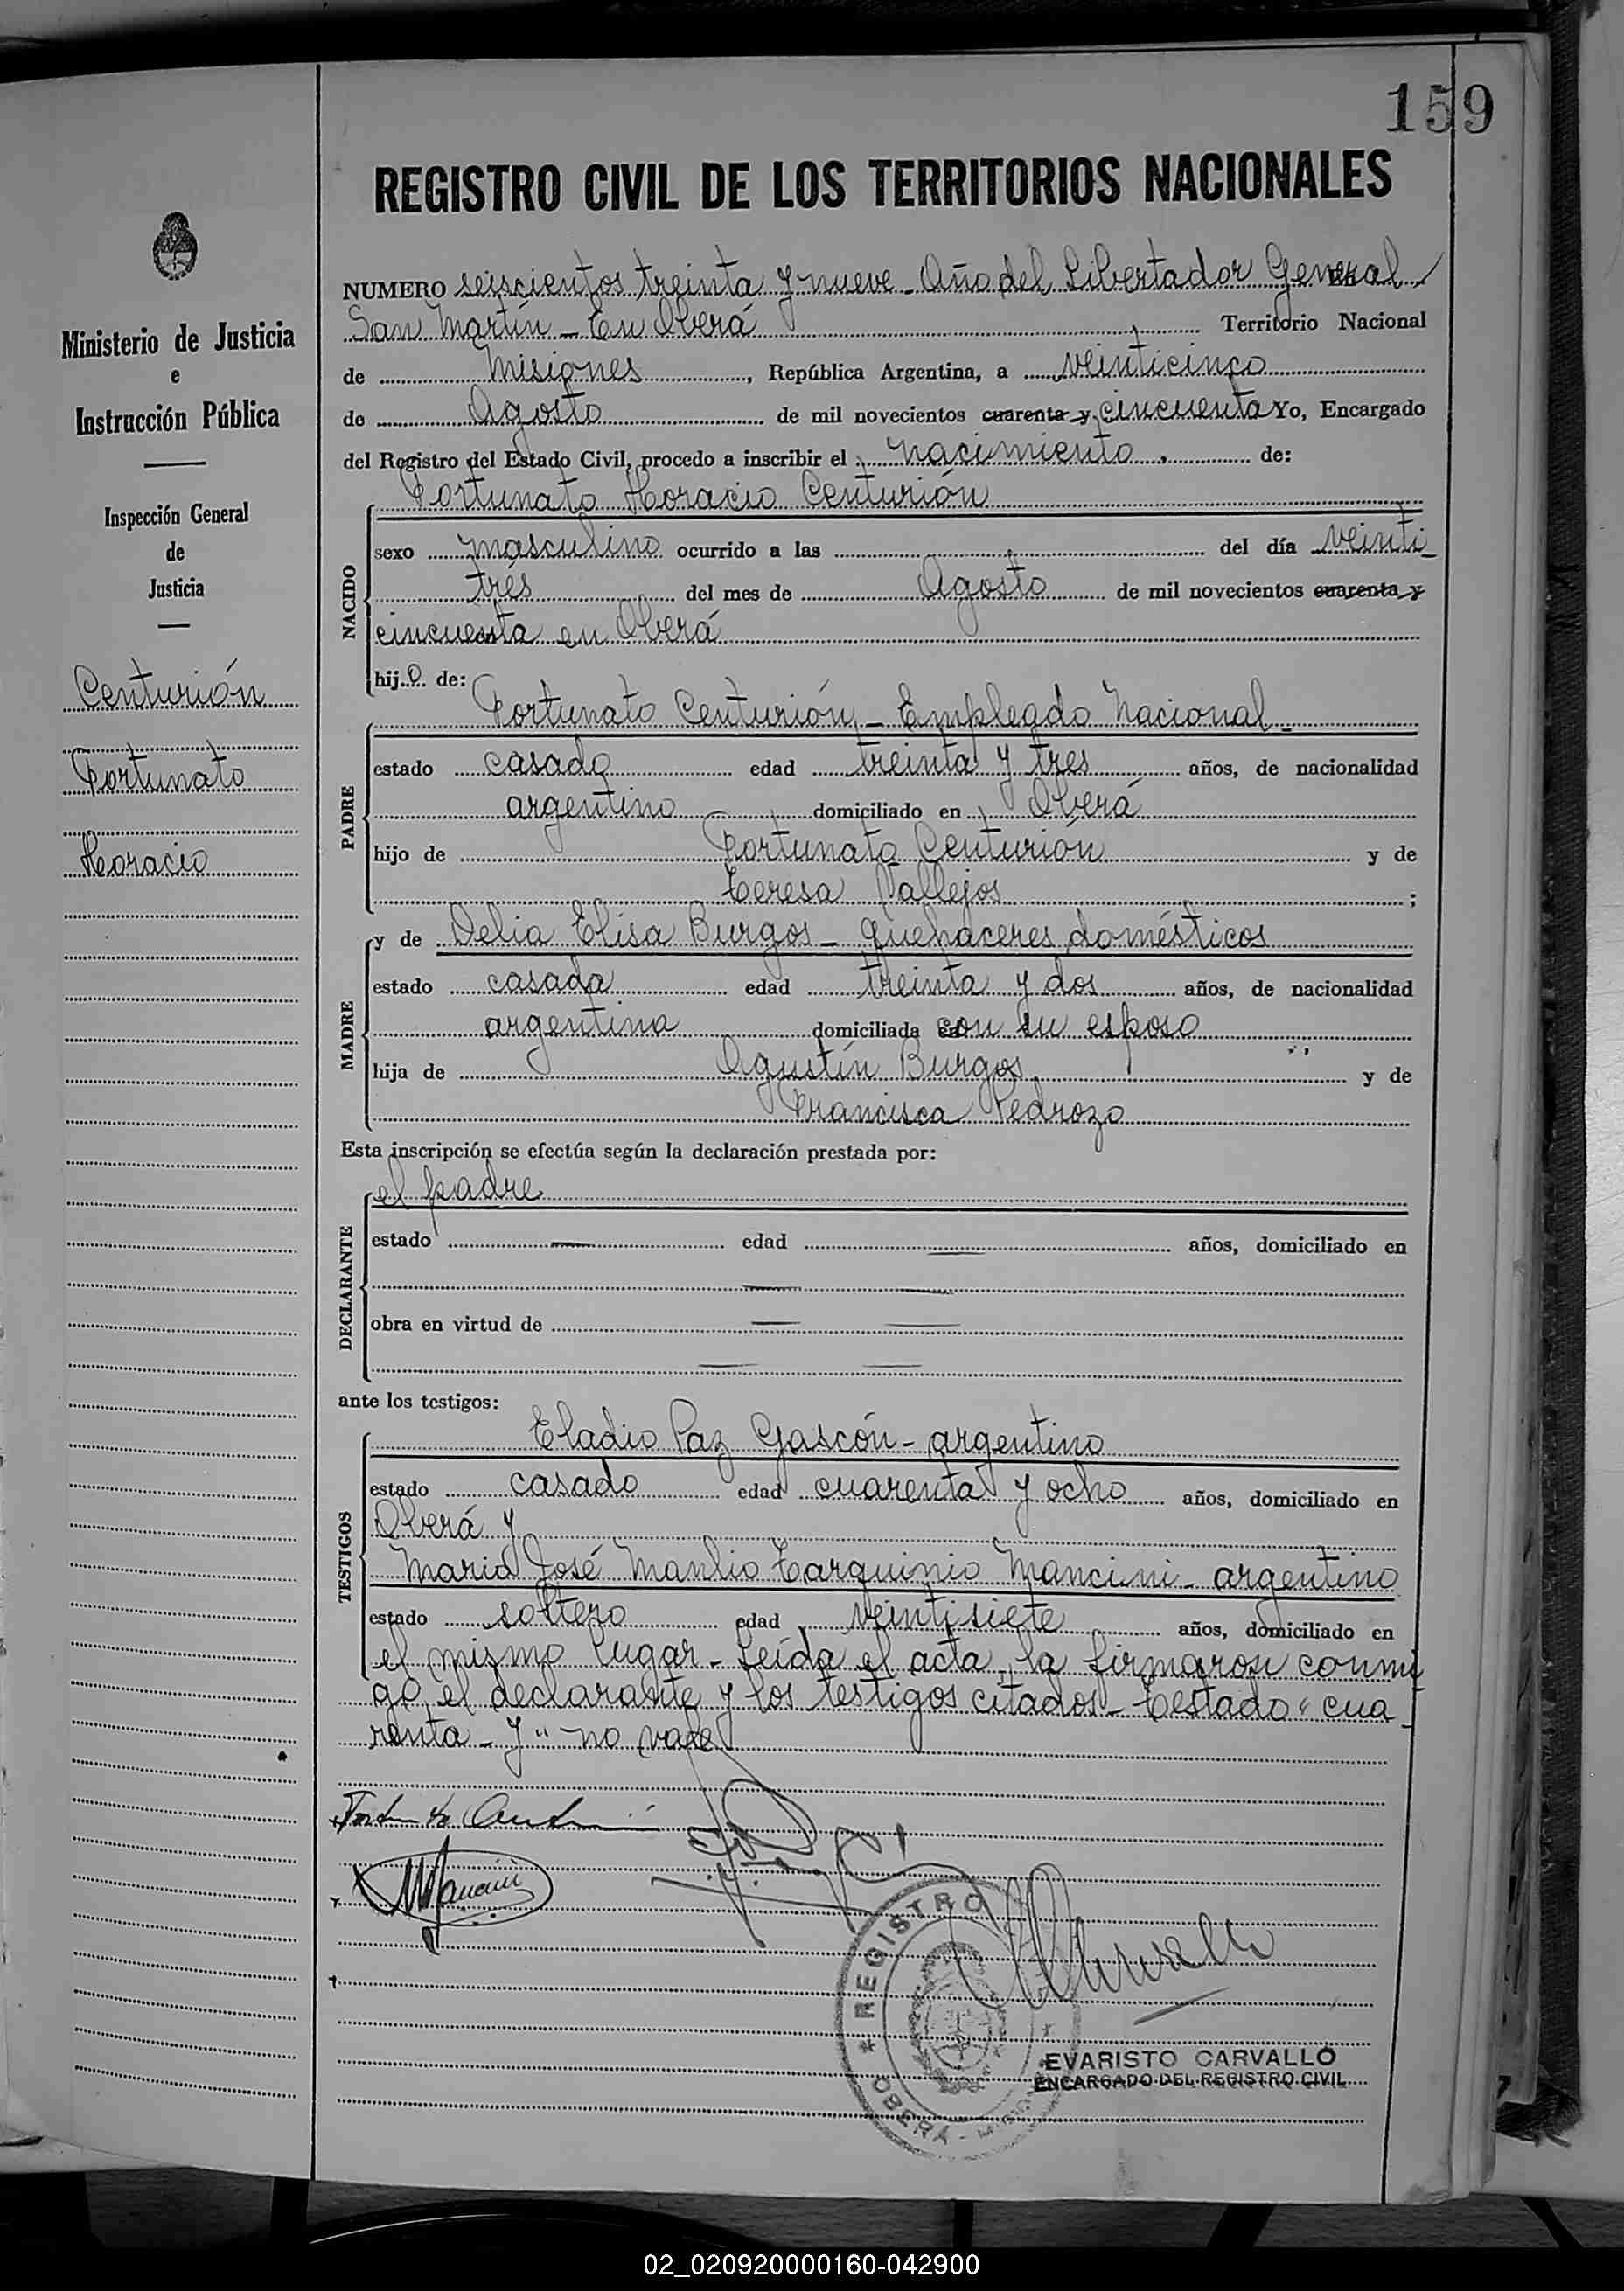 159
REGISTRO CIVIL DE LOS TERRITORIOS NACIONALES
Ministerio de Justicia
e
Instrucción Pública
Inspección General
de
Justicia
Centurión
Fortunato
Horacio
NUMERO seiscientos treinta y nueve - Año del Libertador General
San Martín - En Oberá Territorio Nacional
de Misiones, República Argentina, a veinticinco
de Agosto de mil novecientos cuarenta y cincuenta Yo, Encargado
del Registro del Estado Civil, procedo a inscribir el nacimiento de:
Fortunato Horacio Centurión
NACIDO
sexo masculino ocurrido a las del día veinti
trés del mes de Agosto de mil novecientos cuarenta y
cincuenta en Oberá
hijo de:
PADRE
Fortunato Centurión - Empleado Nacional -
estado casado edad treinta y tres años, de nacionalidad
argentino domiciliado en Oberá
hijo de Fortunato Centurión y de
Teresa Vallejos ;
MADRE
y de Delia Elisa Burgos - quehaceres domésticos
estado casada edad treinta y dos años, de nacionalidad
argentina domiciliada con su esposo
hija de Agustín Burgos y de
Francisca Pedrozo
Esta inscripción se efectúa según la declaración prestada por:
DECLARANTE
el padre
estado — edad — años, domiciliado en
— —
obra en virtud de — —
— —
ante los testigos:
TESTIGOS
Eladio Paz Gascón - argentino
estado casado edad cuarenta y ocho años, domiciliado en
Oberá y
Mario José Manlio Tarquinio Mancini - argentino
estado soltero edad veintisiete años, domiciliado en
el mismo lugar - Leída el acta, la firmaron conmi
go, el declarante y los testigos citados - Testado "cua
renta - y" no vale
Fortunato Centurión
MMancini
Carvallo
REGISTRO
OBERA -
EVARISTO CARVALLO
ENCARGADO DEL REGISTRO CIVIL
02_020920000160-042900